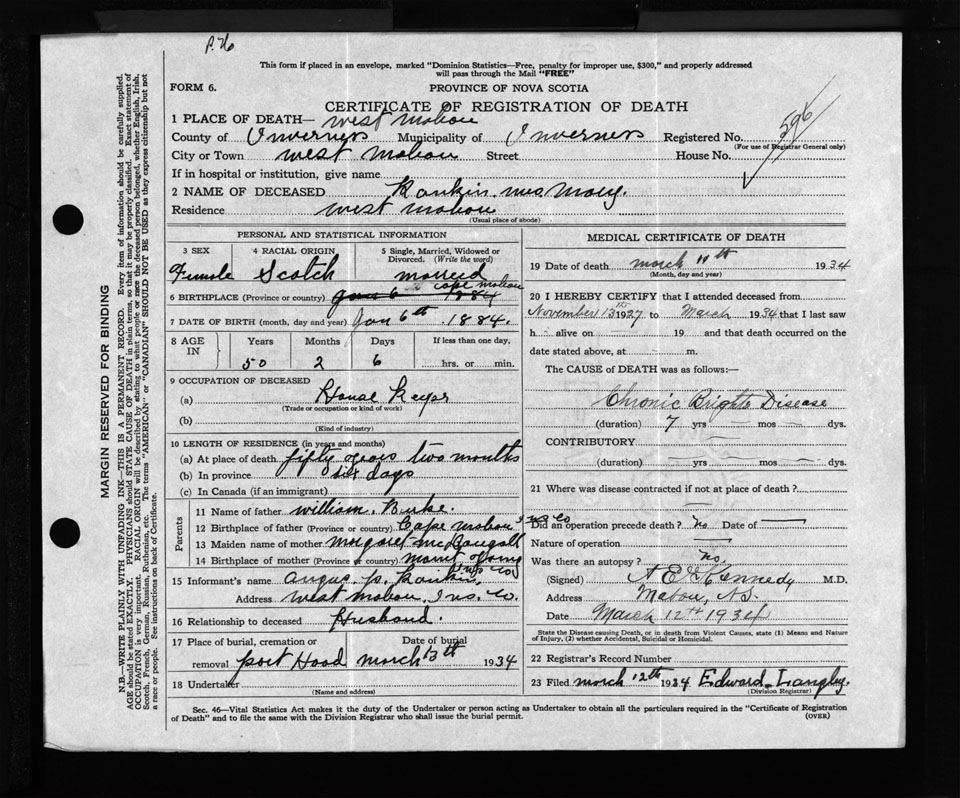 P. 76
This form if placed in an envelope, marked "Dominion Statistics—Free, penalty for improper use, $300," and properly addressed
will pass through the Mail "FREE"
FORM 6. PROVINCE OF NOVA SCOTIA
CERTIFICATE OF REGISTRATION OF DEATH
1 PLACE OF DEATH— West Mabou
County of Inverness Municipality of Inverness Registered No. 596
(For use of Registrar General only)
City or Town West Mabou Street House No.
If in hospital or institution, give name
2 NAME OF DECEASED Rankin. Mrs Mary.
Residence West Mabou
(Usual place of abode)
PERSONAL AND STATISTICAL INFORMATION
3 SEX 4 RACIAL ORIGIN 5 Single, Married, Widowed or
Divorced. (Write the word)
Female Scotch married
Cape Mabou
6 BIRTHPLACE (Province or country) Jan 6 1884
7 DATE OF BIRTH (month, day and year) Jan 6th 1884.
8 AGE IN Years Months Days If less than one day,
50 2 6 hrs. or min.
9 OCCUPATION OF DECEASED
(a) House Keeper
(Trade or occupation or kind of work)
(b)
(Kind of industry)
10 LENGTH OF RESIDENCE (in years and months)
(a) At place of death fifty years two months
(b) In province six days
(c) In Canada (if an immigrant)
Parents
11 Name of father William. Burke.
12 Birthplace of father (Province or country) Cape Mabou Co
13 Maiden name of mother Margaret McDougall
14 Birthplace of mother (Province or country) Mount Young
Inv. Co
15 Informant's name Angus J. Rankin.
Address West Mabou, Inv. Co.
16 Relationship to deceased Husband.
17 Place of burial, cremation or Date of burial
removal Port Hood March 13th 1934
18 Undertaker
(Name and address)
MEDICAL CERTIFICATE OF DEATH
19 Date of death March 11th 1934
(Month, day and year)
20 I HEREBY CERTIFY that I attended deceased from
November 13th 1927 to March 1934 that I last saw
h alive on 19 and that death occurred on the
date stated above, at m.
The CAUSE of DEATH was as follows:—
Chronic Brights Disease
(duration) 7 yrs — mos — dys.
CONTRIBUTORY
(duration) yrs mos dys.
21 Where was disease contracted if not at place of death?
Did an operation precede death? No Date of
Nature of operation
Was there an autopsy? No.
(Signed) Kennedy M.D.
Address Mabou, N.S.
Date March 12th 1934
State the Disease causing Death, or in death from Violent Causes, state (1) Means and Nature
of Injury, (2) whether Accidental, Suicidal or Homicidal.
22 Registrar's Record Number
23 Filed March 12th 1934 Edward Langley.
(Division Registrar)
Sec. 46—Vital Statistics Act makes it the duty of the Undertaker or person acting as Undertaker to obtain all the particulars required in the "Certificate of Registration
of Death" and to file the same with the Division Registrar who shall issue the burial permit. (OVER)
MARGIN RESERVED FOR BINDING
N.B.—WRITE PLAINLY WITH UNFADING INK—THIS IS A PERMANENT RECORD. Every item of information should be carefully supplied.
AGE should be stated EXACTLY. PHYSICIANS should STATE CAUSE OF DEATH in plain terms, so that it may be properly classified. Exact statement of
OCCUPATION is very important. RACIAL ORIGIN will be described by stating to what people or race the deceased person belonged, whether English, Irish,
Scotch, French, German, Russian, Ruthenian, etc. The terms "AMERICAN" or "CANADIAN" SHOULD NOT BE USED as they express citizenship but not
a race or people. See instructions on back of Certificate.